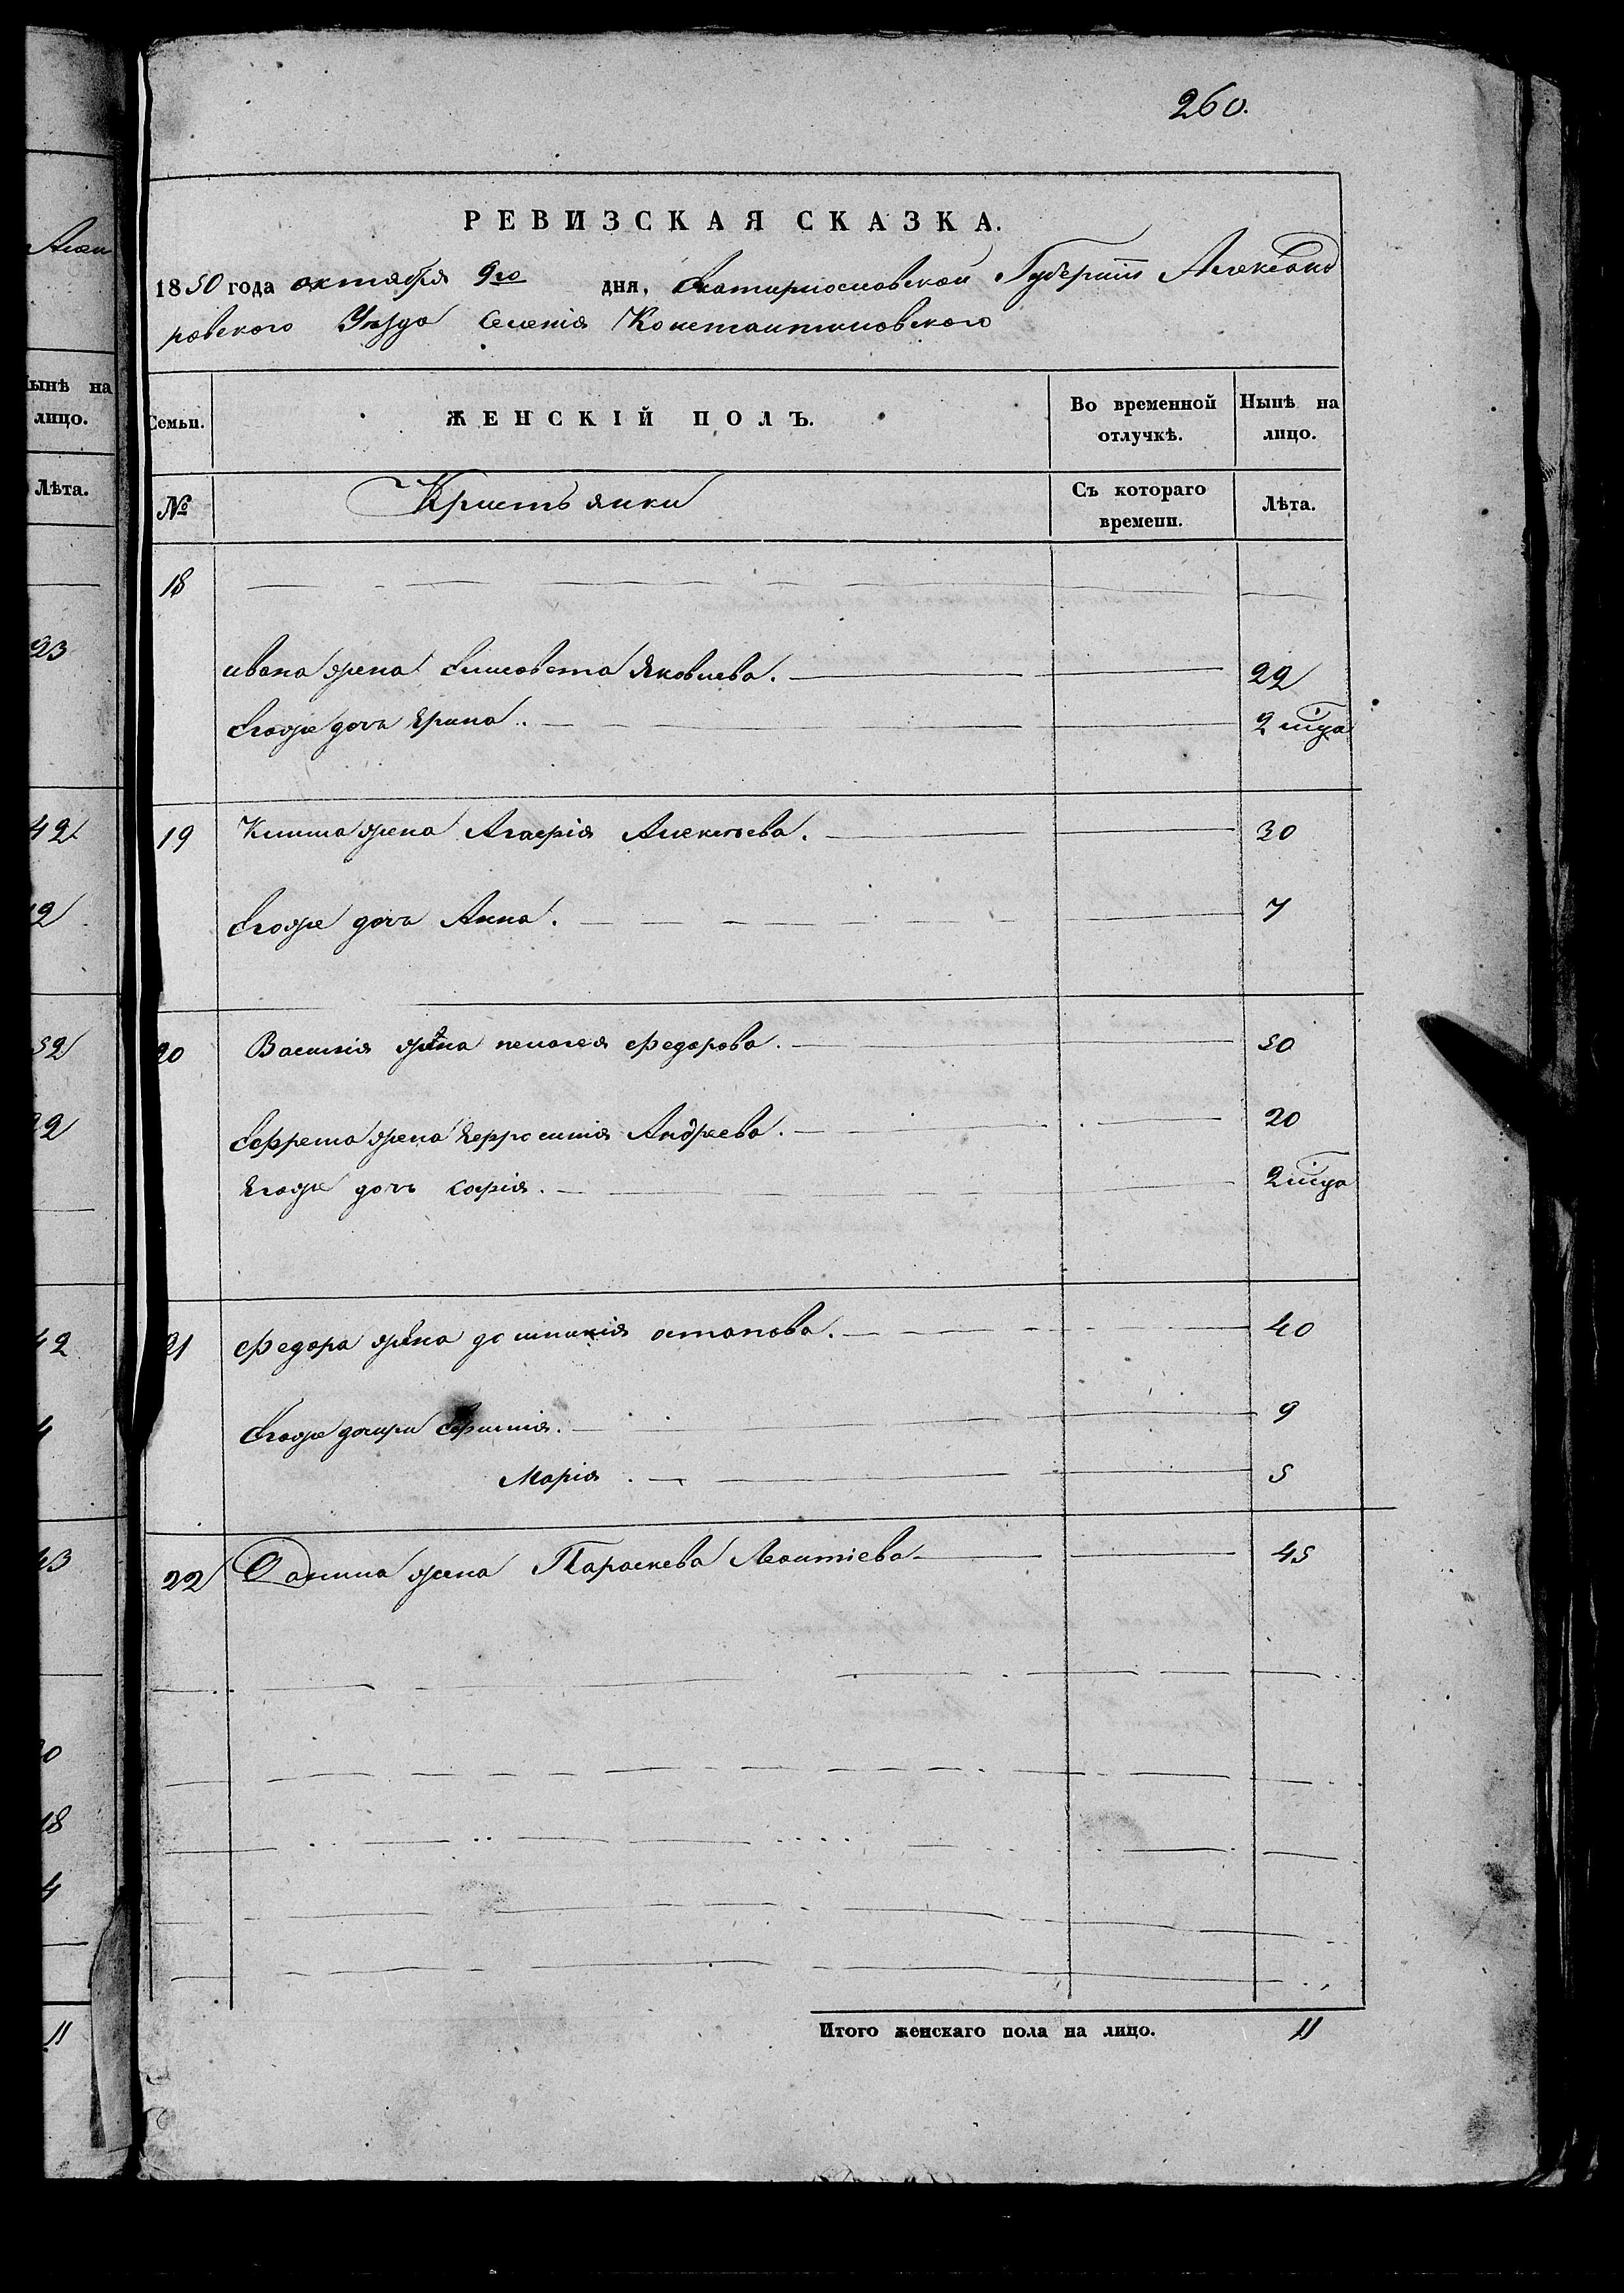 260.
РЕВИЗСКАЯ СКАЗКА.
1850 года октября 9го дня, Екатеринославской Губернiи Александ
ровского Уѣзда Селенiя Константиновского
Семьи. ЖЕНСКIЙ ПОЛЪ. Во временной отлучкѣ. Нынѣ на лицо.
№ Кристьянки Съ котораго времени. Лѣта.
18
ивана жена Елисовета Яковлева. 22
Егоже дочь Ерина.. 2 мца
19 Клима жена Агафiя Алексѣева. 30
Егоже дочь Анна. 7
20 Василiя жена пелагея Федорова. 50
Ефрема жена Ефросинiя Андреева. 20
Егоже дочь Софiя. 2 мца
21 Федора жена домникiя остапова. 40
Егоже дочери Ефимия. 9
Марiя. 5
22 Данила жена Параскева Леонтiева 45
Итого женскаго пола на лицо. 11
Алек
Нынѣ на
лицо.
Лѣта.
23
42
52
42
18
4
11